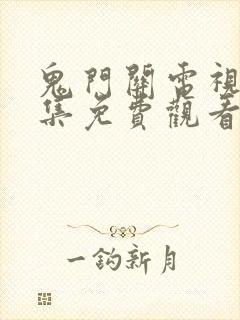 鬼門關電視
集免費觀看
一鈎新月